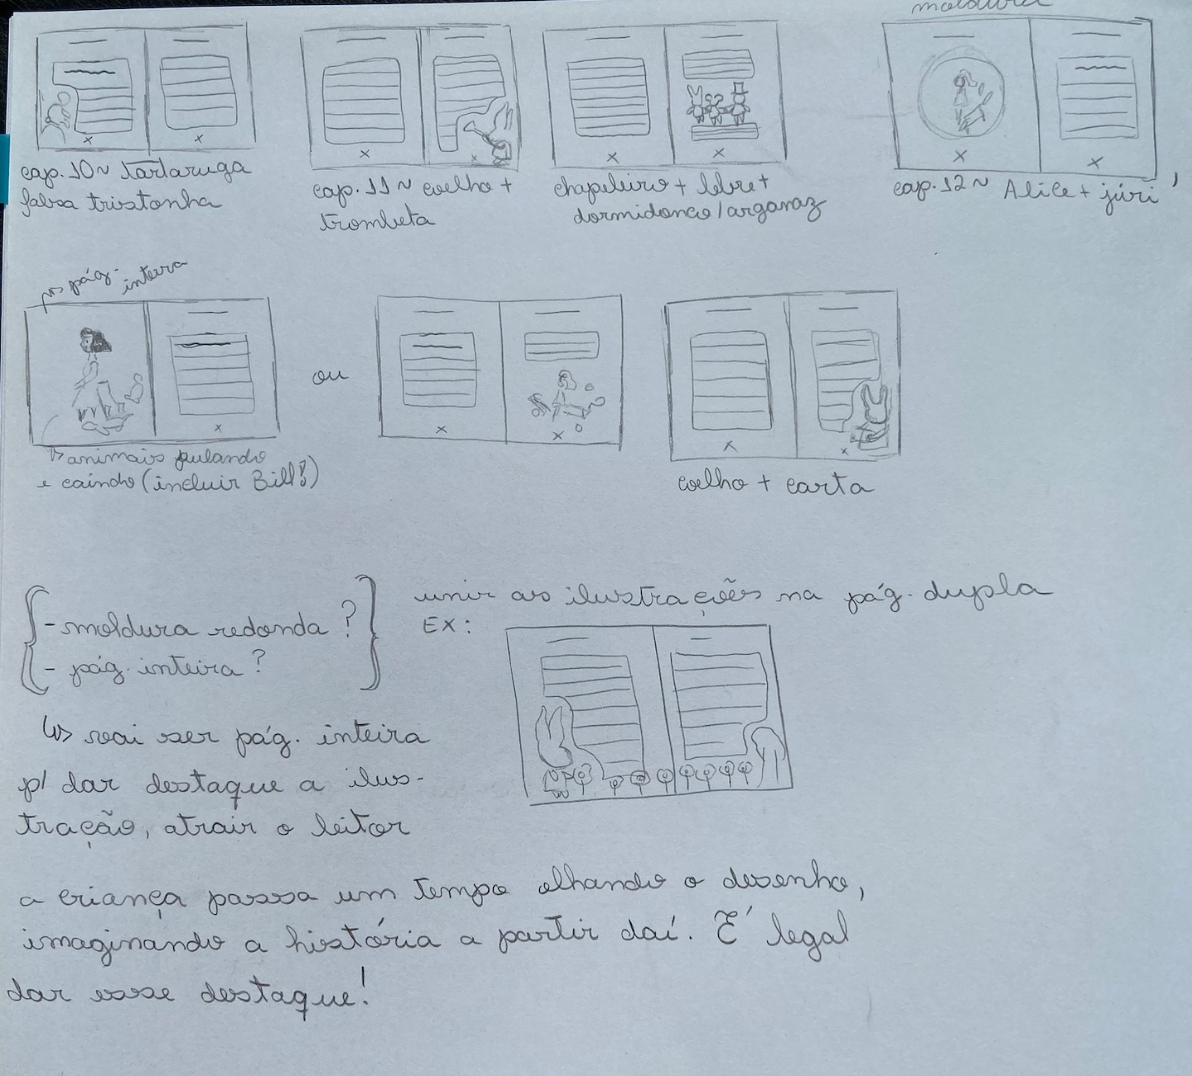 moldura
cap. 10 ~ Tartaruga
falsa tristonha
cap. 11 ~ coelho +
trombeta
chapeleiro + lebre +
dormidonco/arganaz
cap. 12 ~ Alice + júri,
↳ pág. inteira
ou
↳ animais pulando
e caindo (incluir Bill!)
coelho + carta
- moldura redonda?
- pág. inteira?
unir as ilustrações na pág. dupla
EX:
↳ vai ser pág. inteira
p/ dar destaque a ilus-
tração, atrair o leitor
a criança passa um tempo olhando o desenho,
imaginando a história a partir daí. É legal
dar esse destaque!